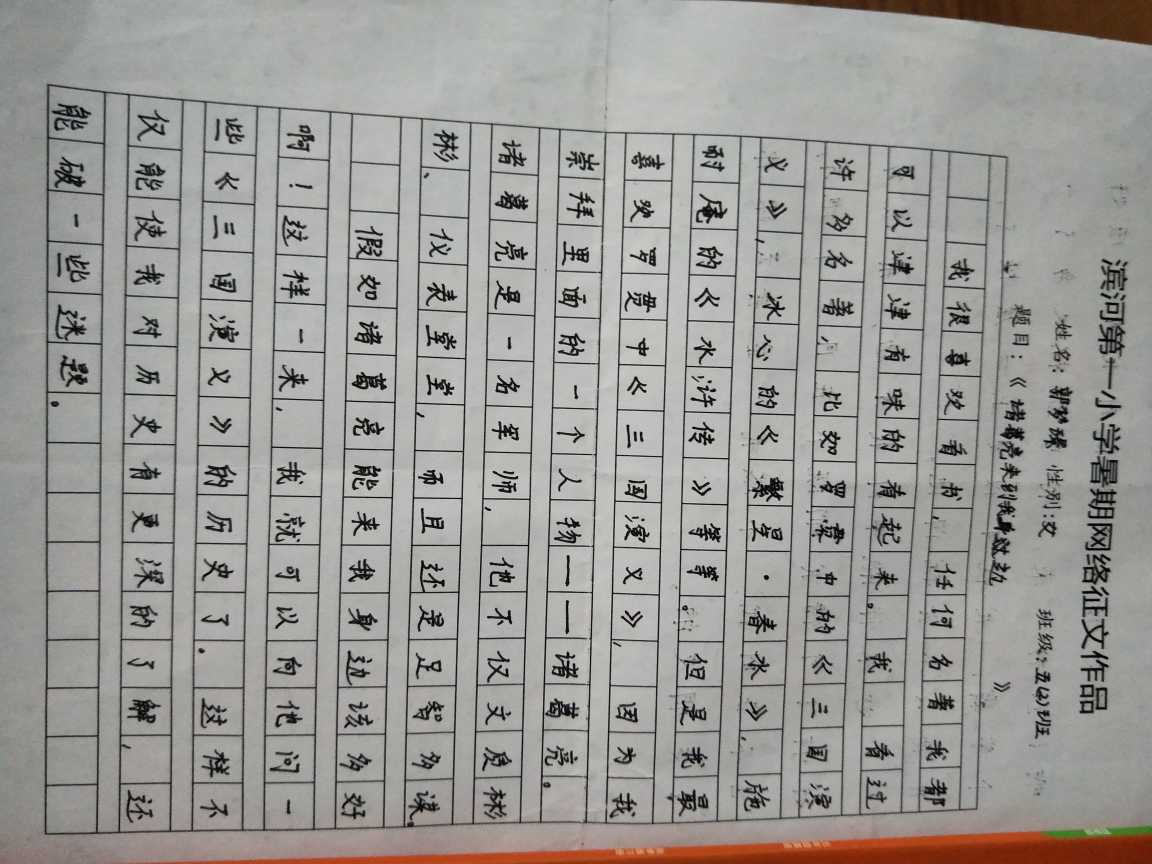 滨河第一小学暑期网络征文作品
姓名：郭梦 性别：女 班级：五(2)班
题目：《诸葛亮来到我身边》
我很喜欢看书，任何名著我都
可以津津有味的看起来。我看过
许多名著，比如罗贯中的《三国演
义》，冰心的《繁星·春水》，施
耐庵的《水浒传》等等。但是我最
喜欢罗贯中《三国演义》，因为我
崇拜里面的一个人物——诸葛亮。
诸葛亮是一名军师，他不仅文质彬
彬、仪表堂堂，而且还是足智多谋。
假如诸葛亮能来我身边该多好
啊！这样一来，我就可以向他问一
些《三国演义》的历史了。这样不
仅能使我对历史有更深的了解，还
能破一些迷题。